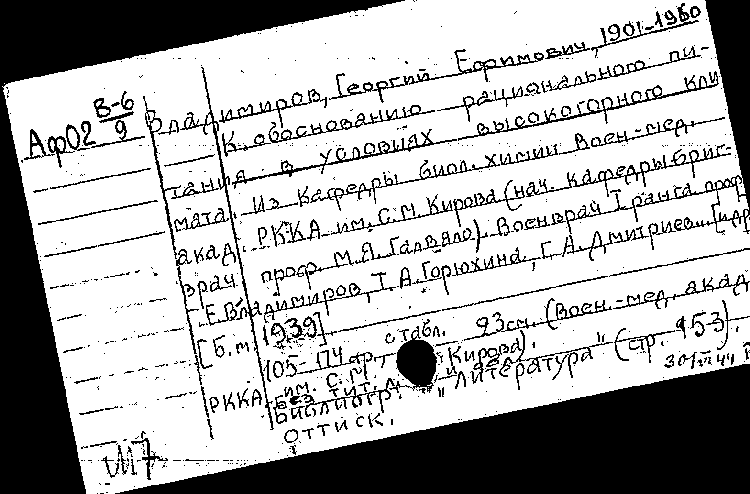 АфО2 В-6/9
Владимиров, Георгий Ефримович, 1901-1960
К обоснованию рационального пи-
тания в условиях высокогорного кли
мата. Из Кафедры биол. химии Воен.-мед.
акад. РККА им. С.М. Кирова (нач. кафедры бриг-
врач проф. М.Я. Галвяло). Военврач I ранга проф
Е. Владимиров, Т.А. Горюхина, Г.А. Дмитриев... [и др
[Б.м. 1939]
105-174 стр., с табл. 23 см. (Воен.-мед. акад
РККА им. С.М. Кирова).
Без тит. л.
Библиогр.: "Литература" (стр. 153).
Оттиск.